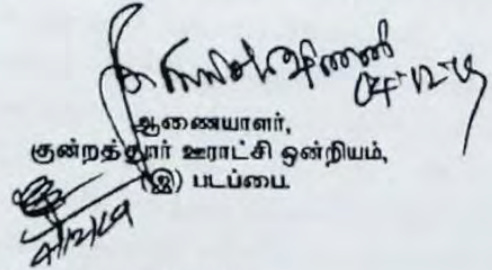 04-12-19
ஆணையாளர்,
குன்றத்தூர் ஊராட்சி ஒன்றியம்,
(இ) படப்பை.
4/12/19